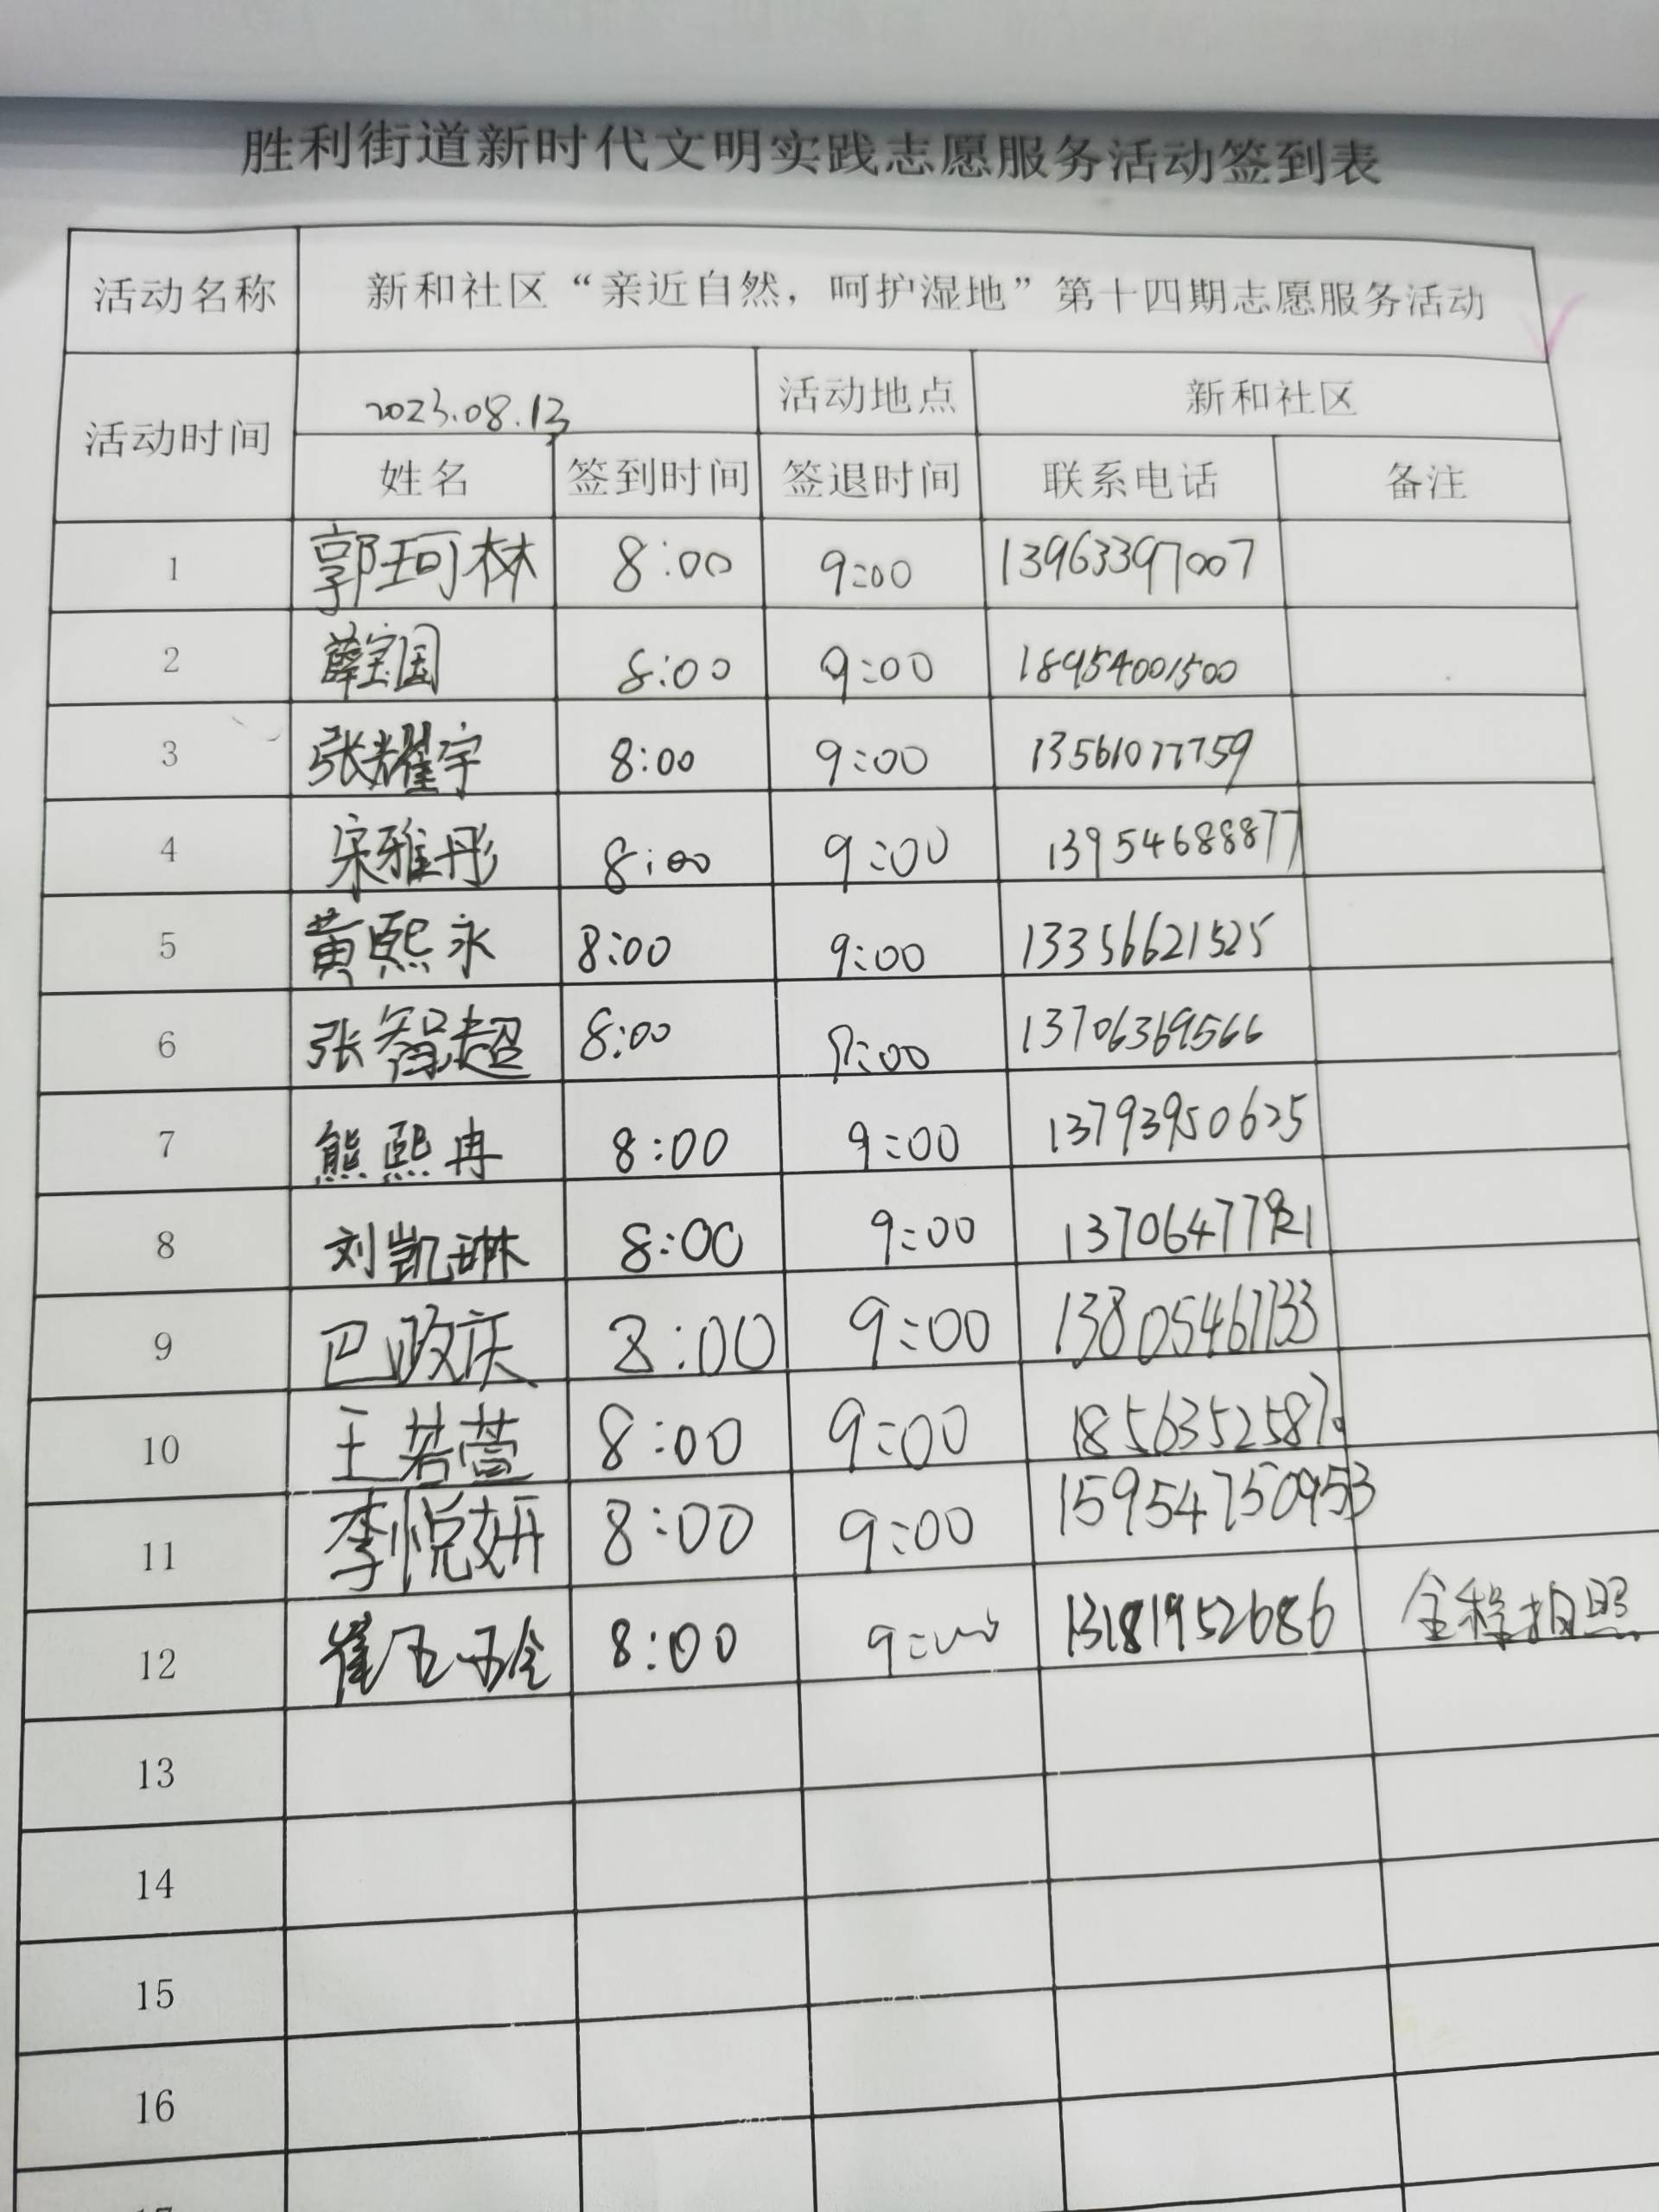 胜利街道新时代文明实践志愿服务活动签到表
活动名称 新和社区“亲近自然，呵护湿地”第十四期志愿服务活动
活动时间 2023.08.13 活动地点 新和社区
姓名 签到时间 签退时间 联系电话 备注
1 郭珂林 8:00 9:00 13963397007
2 薛宝国 8:00 9:00 18954001500
3 张耀宇 8:00 9:00 13561077759
4 宋雅彤 8:00 9:00 13954688877
5 黄熙永 8:00 9:00 13356621525
6 张智超 8:00 9:00 13706369566
7 熊熙冉 8:00 9:00 13793950625
8 刘凯琳 8:00 9:00
9 巴政庆 8:00 9:00 13805461133
10 王若萱 8:00 9:00
11 李悦妍 8:00 9:00 15954750953
12 8:00 9:00 13181952686 全程拍照
13
14
15
16